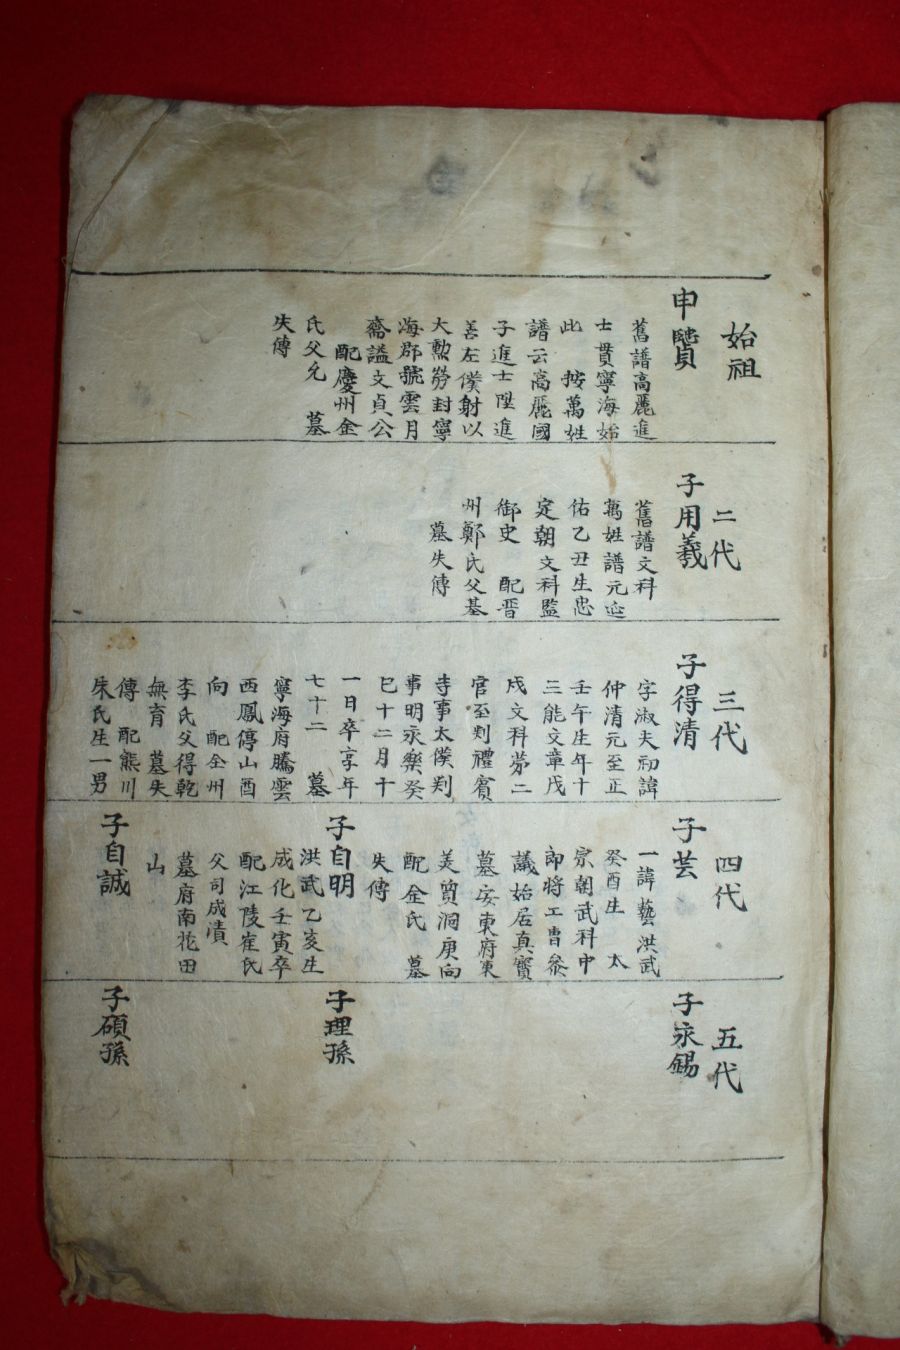 始祖
申賢
舊譜高麗進
士貫寧海始
此 按萬姓
譜云高麗國
子進士陞進
善左僕射以
大勳勞封寧
海郡號雲月
齋謚文貞公
配慶州金
氏父允 墓
失傳
二代
子用羲
舊譜文科
萬姓譜元延
佑乙丑生忠
定朝文科監
御史 配晋
州鄭氏父基
墓失傳
三代
子得清
字淑夫初諱
仲清元至正
壬午生年十
三能文章戊
戌文科第二
官至判禮賓
寺事太僕判
事明永樂癸
巳十二月十
一日卒享年
七十二 墓
寧海府騰雲
西鳳停山酉
向 配全州
李氏父得乾
無育 墓失
傳 配熊川
朱氏生一男
四代
子芸
一諱藝洪武
癸酉生 太
宗朝武科中
郎將工曹叅
議始居真寶
墓安東府東
美質洞庚向
配金氏 墓
失傳
子自明
洪武乙亥生
成化壬寅卒
配江陵崔氏
父司成漬
墓府南花田
山
子自誠
五代
子永錫
子理孫
子碩孫